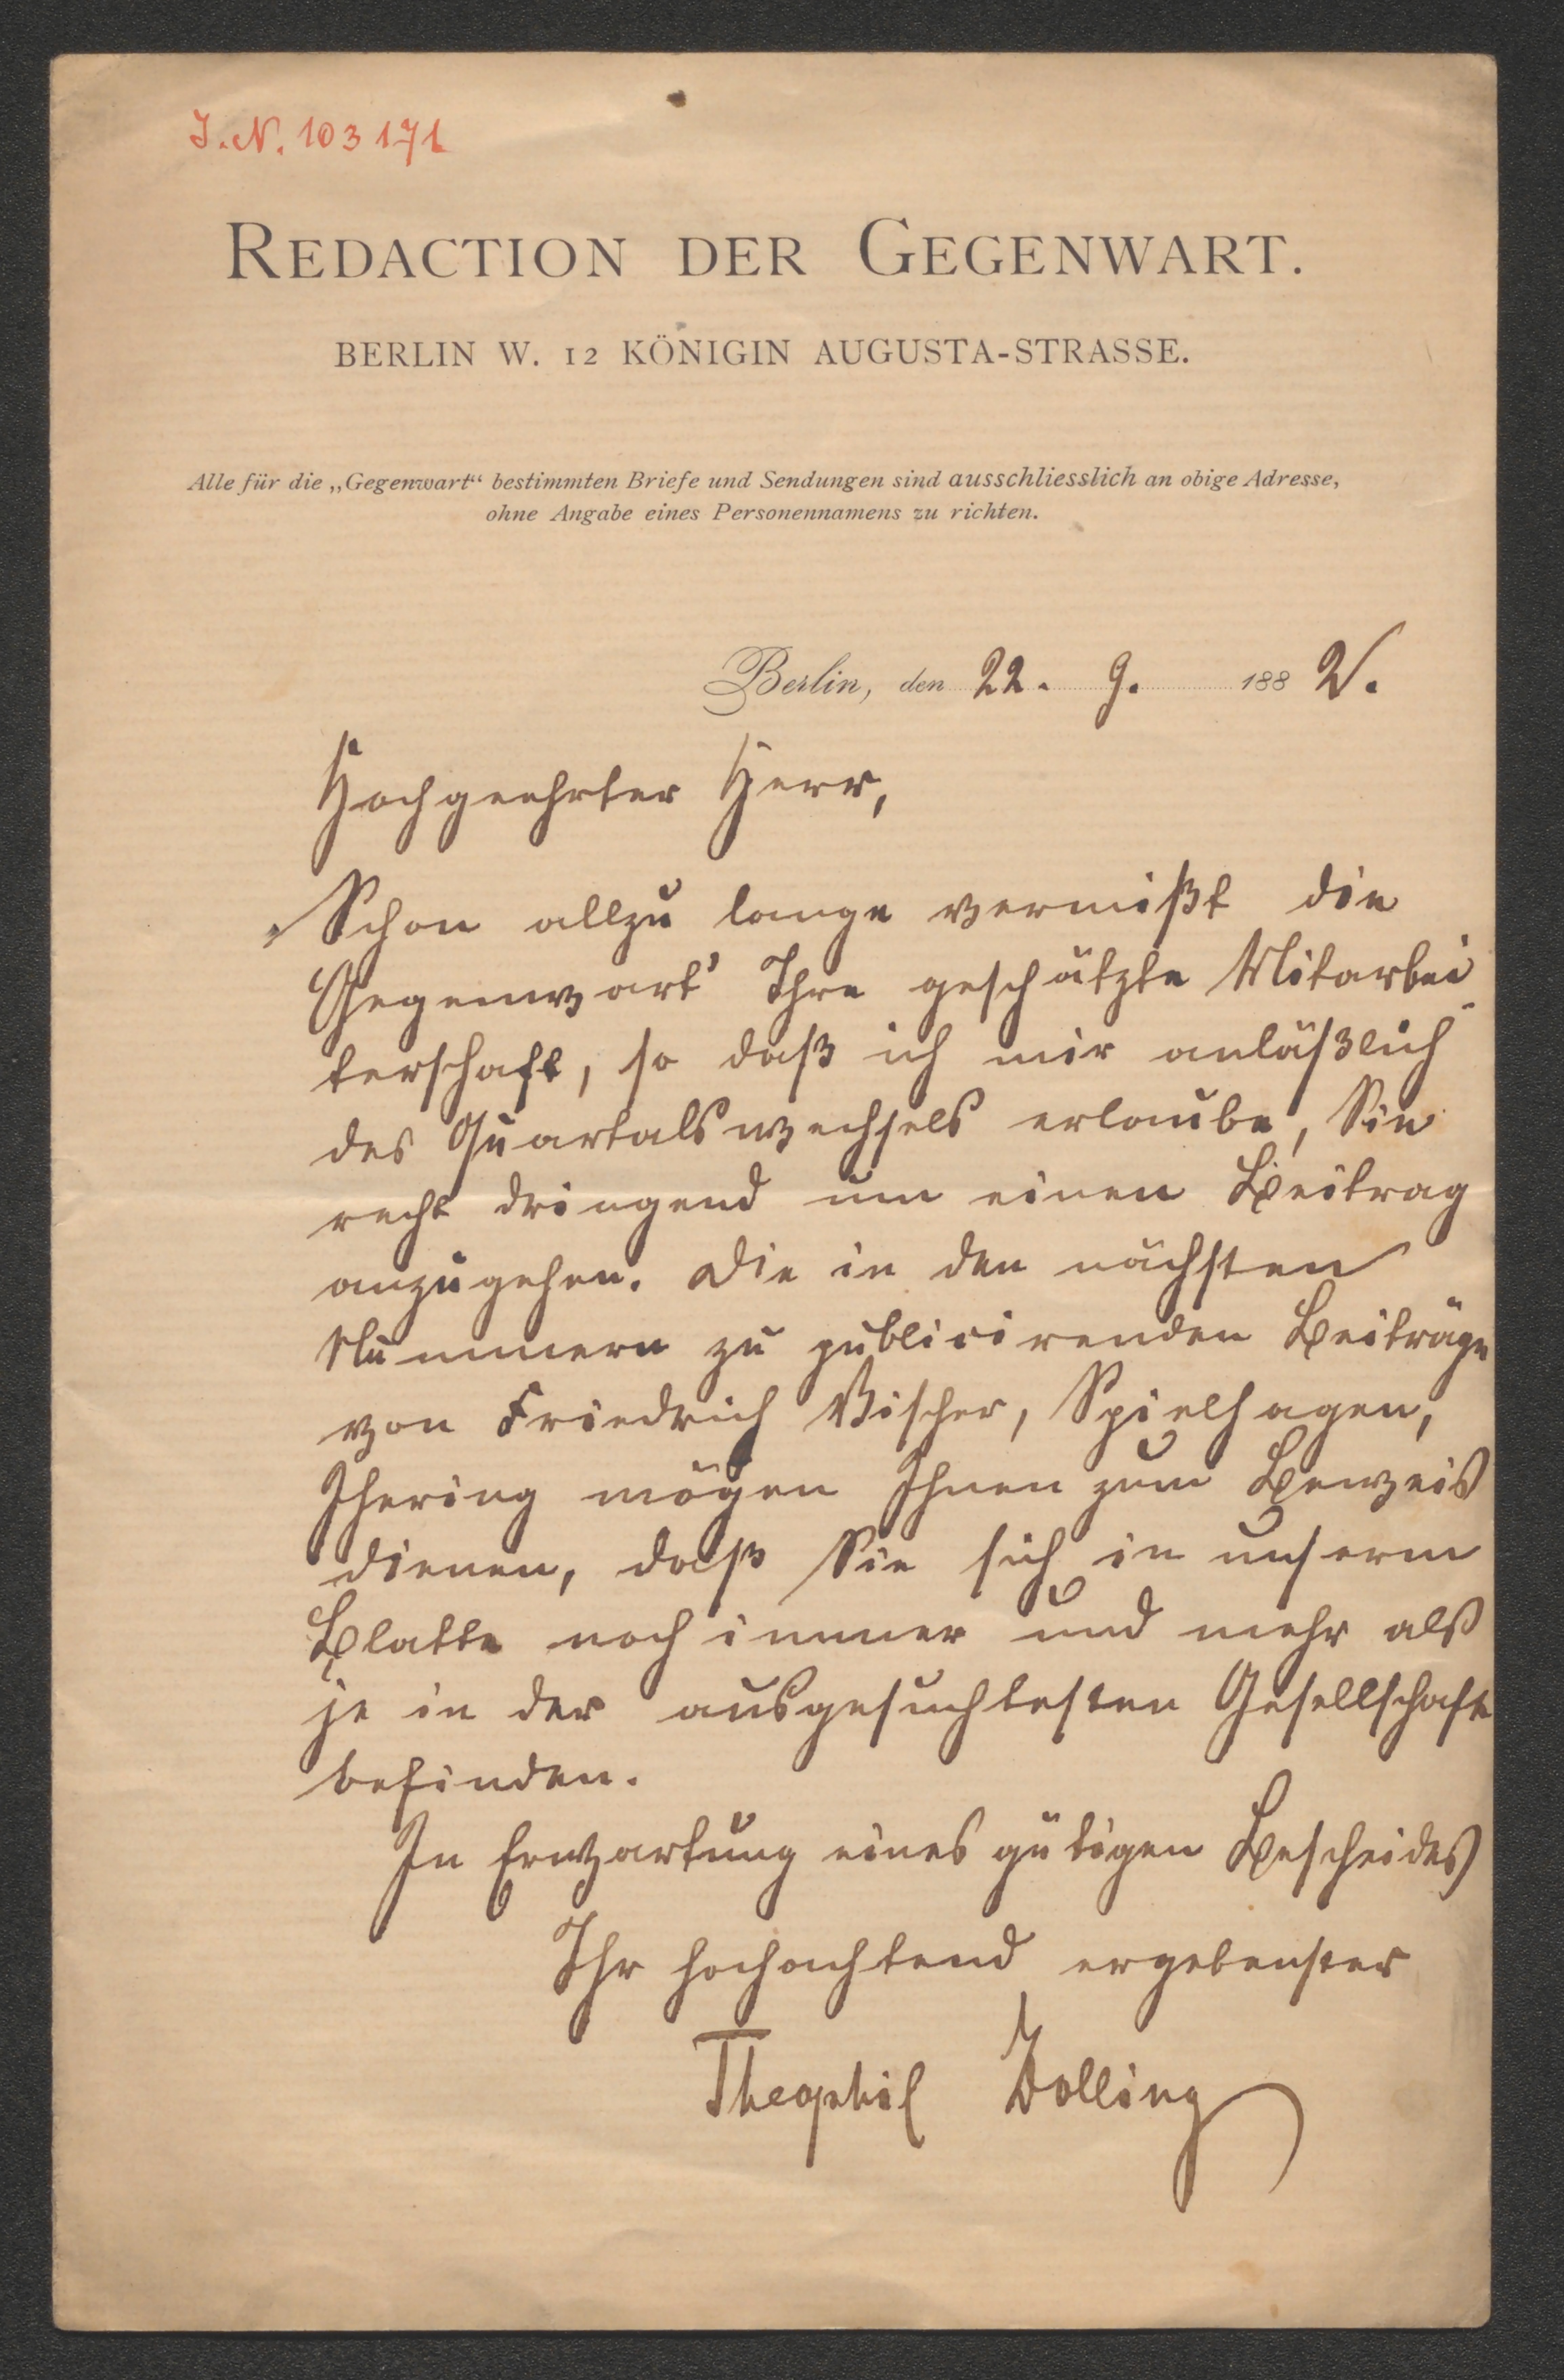 J.N. 103171
REDACTION DER GEGENWART.
BERLIN W. 12 KÖNIGIN AUGUSTA-STRASSE.
Alle für die „Gegenwart“ bestimmten Briefe und Sendungen sind ausschliesslich an obige Adresse,
ohne Angabe eines Personennamens zu richten.
Berlin, den 22. 9. 1882.
Hochgeehrter Herr,
Schon allzu lange vermißt die
„Gegenwart“ Ihre geschätzte Mitarbei-
terschaft, so daß ich mir anläßlich
des Quartalswechsels erlaube, Sie
recht dringend um einen Beitrag
anzugehen. Die in den nächsten
Nummern zu publicirenden Beiträge
von Friedrich Vischer, Spielhagen,
Ihering mögen Ihnen zum Beweis
dienen, daß Sie sich in unserm
Blatte noch immer und mehr als
je in der ausgesuchtesten Gesellschaft
befinden.
In Erwartung eines gütigen Bescheides
Ihr hochachtend ergebenster
Theophil Zolling